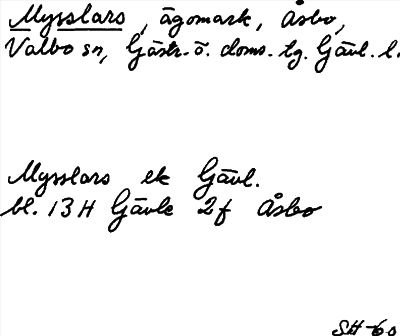 Mysslars, ägomark, Åsbo,
Valbo sn, Gästr. ö. doms. lg. Gävl. l.
Mysslars ek Gävl.
bl. 13 H Gävle 2f Åsbo
SH-60